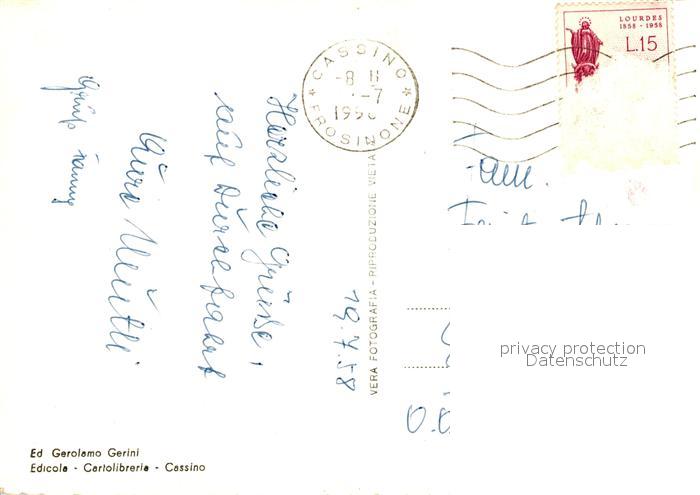 LOURDES
1858 - 1958
L.15
CASSINO
FROSINONE
Herzliche Grüsse,
auf Durchfahrt
Eure
Gruss
19.7.58
VERA FOTOGRAFIA - RIPRODUZIONE VIETATA
Fam.
privacy protection
Datenschutz
Ed Gerolamo Gerini
Edicola - Cartolibreria - Cassino